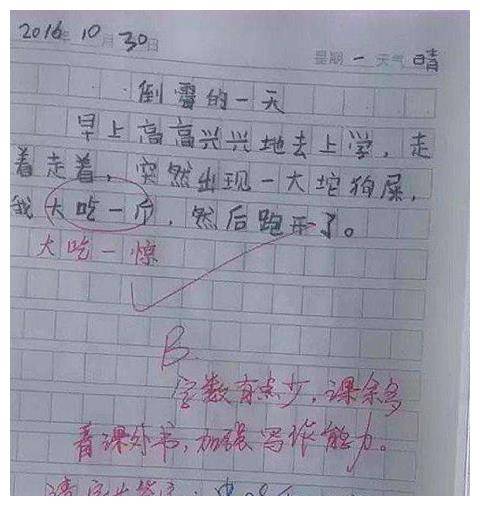 2016年10月30日
星期一 天气 晴
倒霉的一天
早上高高兴兴地去上学，走
着走着，突然出现一大坨狗屎，
我大吃一斤，然后跑开了。
大吃一惊
B
字数有点少，课余多
看课外书，加强写作能力。
请家长签字：